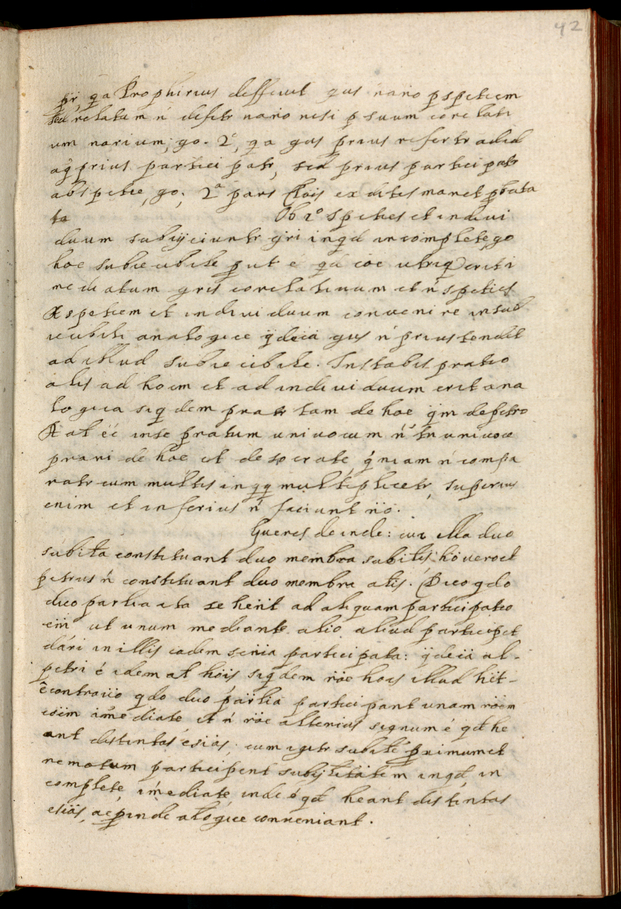 42
pr̃ q̃a Prophirius deffinit gus nario p spetiem
relatum ñ defitr nario nisi p suum corelati
um narium; go. 2º, qa gus prius refertr ad id
a q̃ prius partici patr, sed prius partici patr
ab spetie, go; 2ª pars Cl̃ois ex dictis manet p̃bata
Ob 2º spetiet et indivi
duum subijciuntr g̃ri in q̃d incomplete go
hoc subie cibile p ut e q̃d cõe utriq
me di atum gris corelatiuum et ñ spetiet
R spetiem et indivi duum conveni re in sub
iicibili analogice q̃ deia gus ñ prius tendit
ad illud subie cibile. Instabis pratio
alis ad hoĩem et ad indi vi duum erit ana
logica siq̃ dem pratr tam de hoc q̃m de petro
R at ẽe inse pratum univocum ñ tn univoce
prari de hoc et de so crate q̃niam ñ compa
ratr cum multis in q̃q multiplicetr, superius
enim et inferius ñ faciunt nõ.
Queres de inde: cur illa duo
subita constituant duo membra subitis: hõ vero et
petrus ñ constituant duo membra alis. Dico q̃do
duo partia ita se hent ad aliquam participatio
em ut unum mediante alio aliud participet
dari in illis eadem senia participata: q̃ deia al-
petri é idem at hois siq̃dem rõe hois illud hit-
econtrario q̃do duo partia partici pant unam rõem
coem imediate et ñ rõe alterius signum é q̃d he
ant distintas esias: cum igitr subite primum et
remotum participent subijtitatem in q̃d in
complete imediate inde é q̃d heant distintas
esias, ac p inde alogice conveniant.